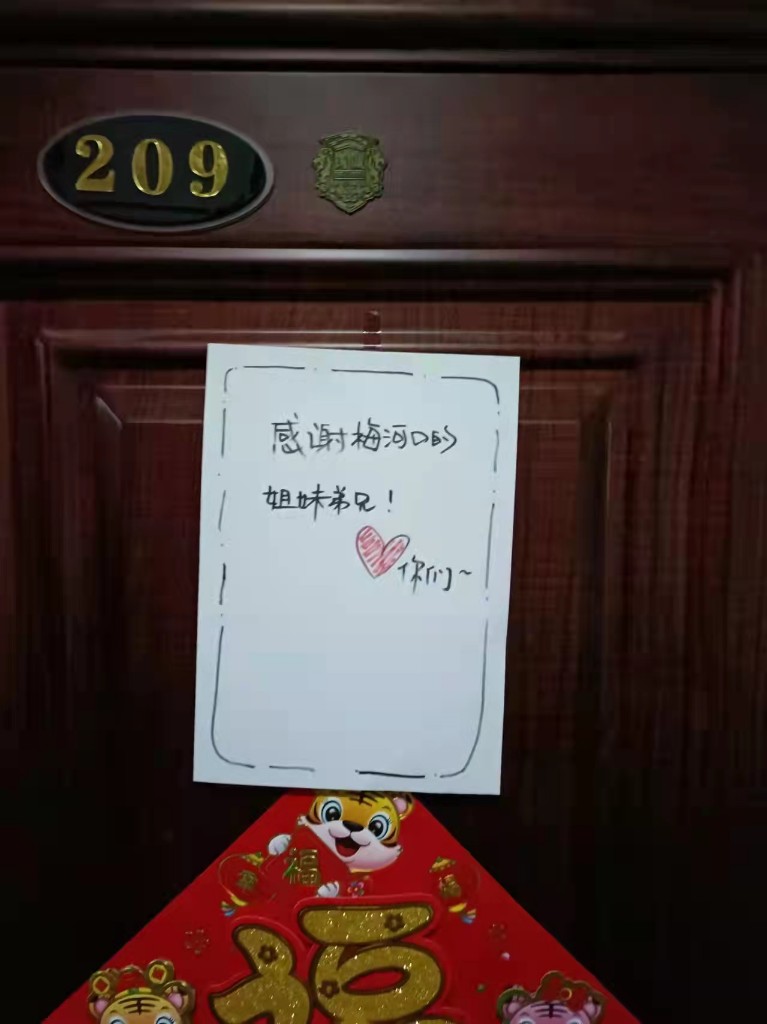 209
感谢梅河口的
姐妹弟兄!
你们~
福
福
福